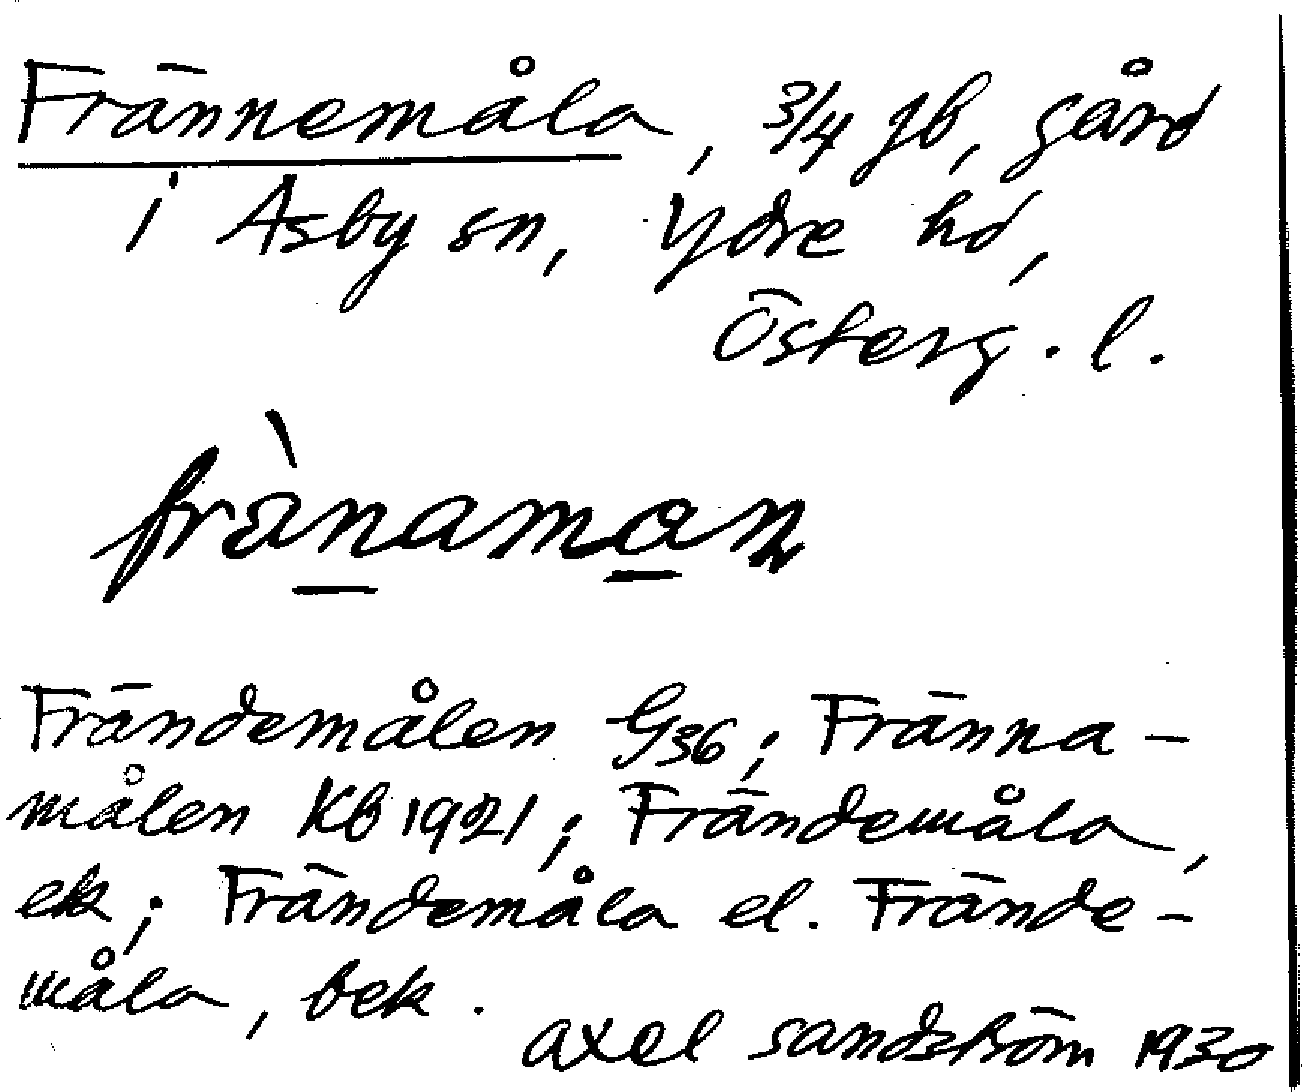 Frännemåla, 3/4 jb, gård
i Asby sn, Ydre hd,
Österg. l.
frànaman
Frändemålen G36; Fränna-
målen Kb 1921; Frändemåla,
ek; Frändemåla el. Frände-
måla, bek.
axel sandström 1930